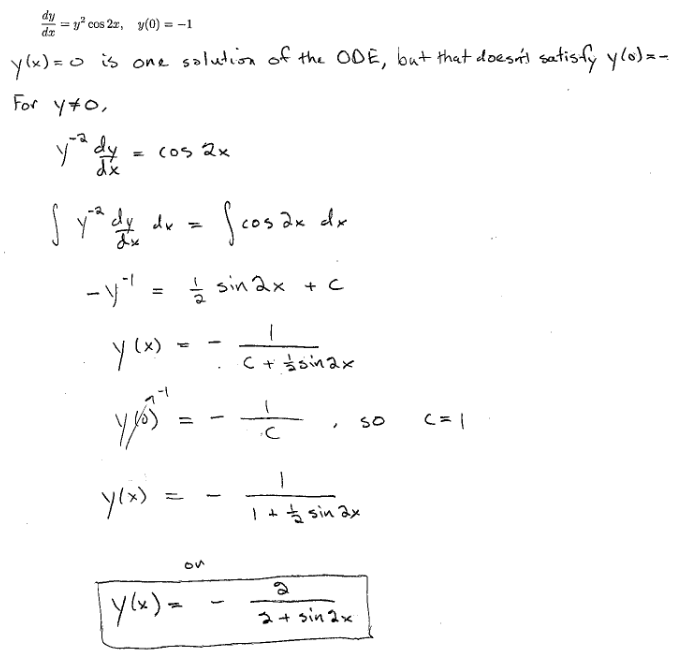 dy/dx = y² cos 2x, y(0) = −1
y(x) = 0 is one solution of the ODE, but that doesn't satisfy y(0) = −
For y ≠ 0,
y⁻² dy/dx = cos 2x
∫ y⁻² dy/dx dx = ∫ cos 2x dx
−y⁻¹ = 1/2 sin 2x + C
y(x) = − 1/(C + 1/2 sin 2x)
y(0) −1 = − 1/C , so C = 1
y(x) = − 1/(1 + 1/2 sin 2x)
or
y(x) = − 2/(2 + sin 2x)